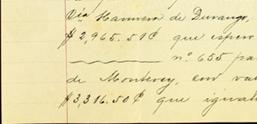 Via Hannera de Durango,
$2,965.51¢ que espero
nº 655 pa
de Monterey, con va
$3,316.50¢ que igual